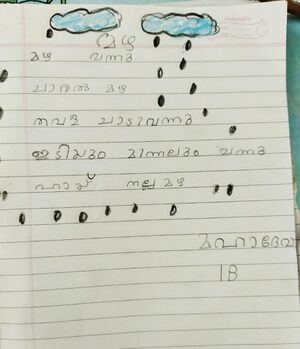 മഴ
മഴ വന്നു
ചാറൽ മഴ
തവള ചാടിവന്നു
ഇടിയും മിന്നലും വന്നു
ഹായ് നല്ല മഴ
മഹാദേവ
1B